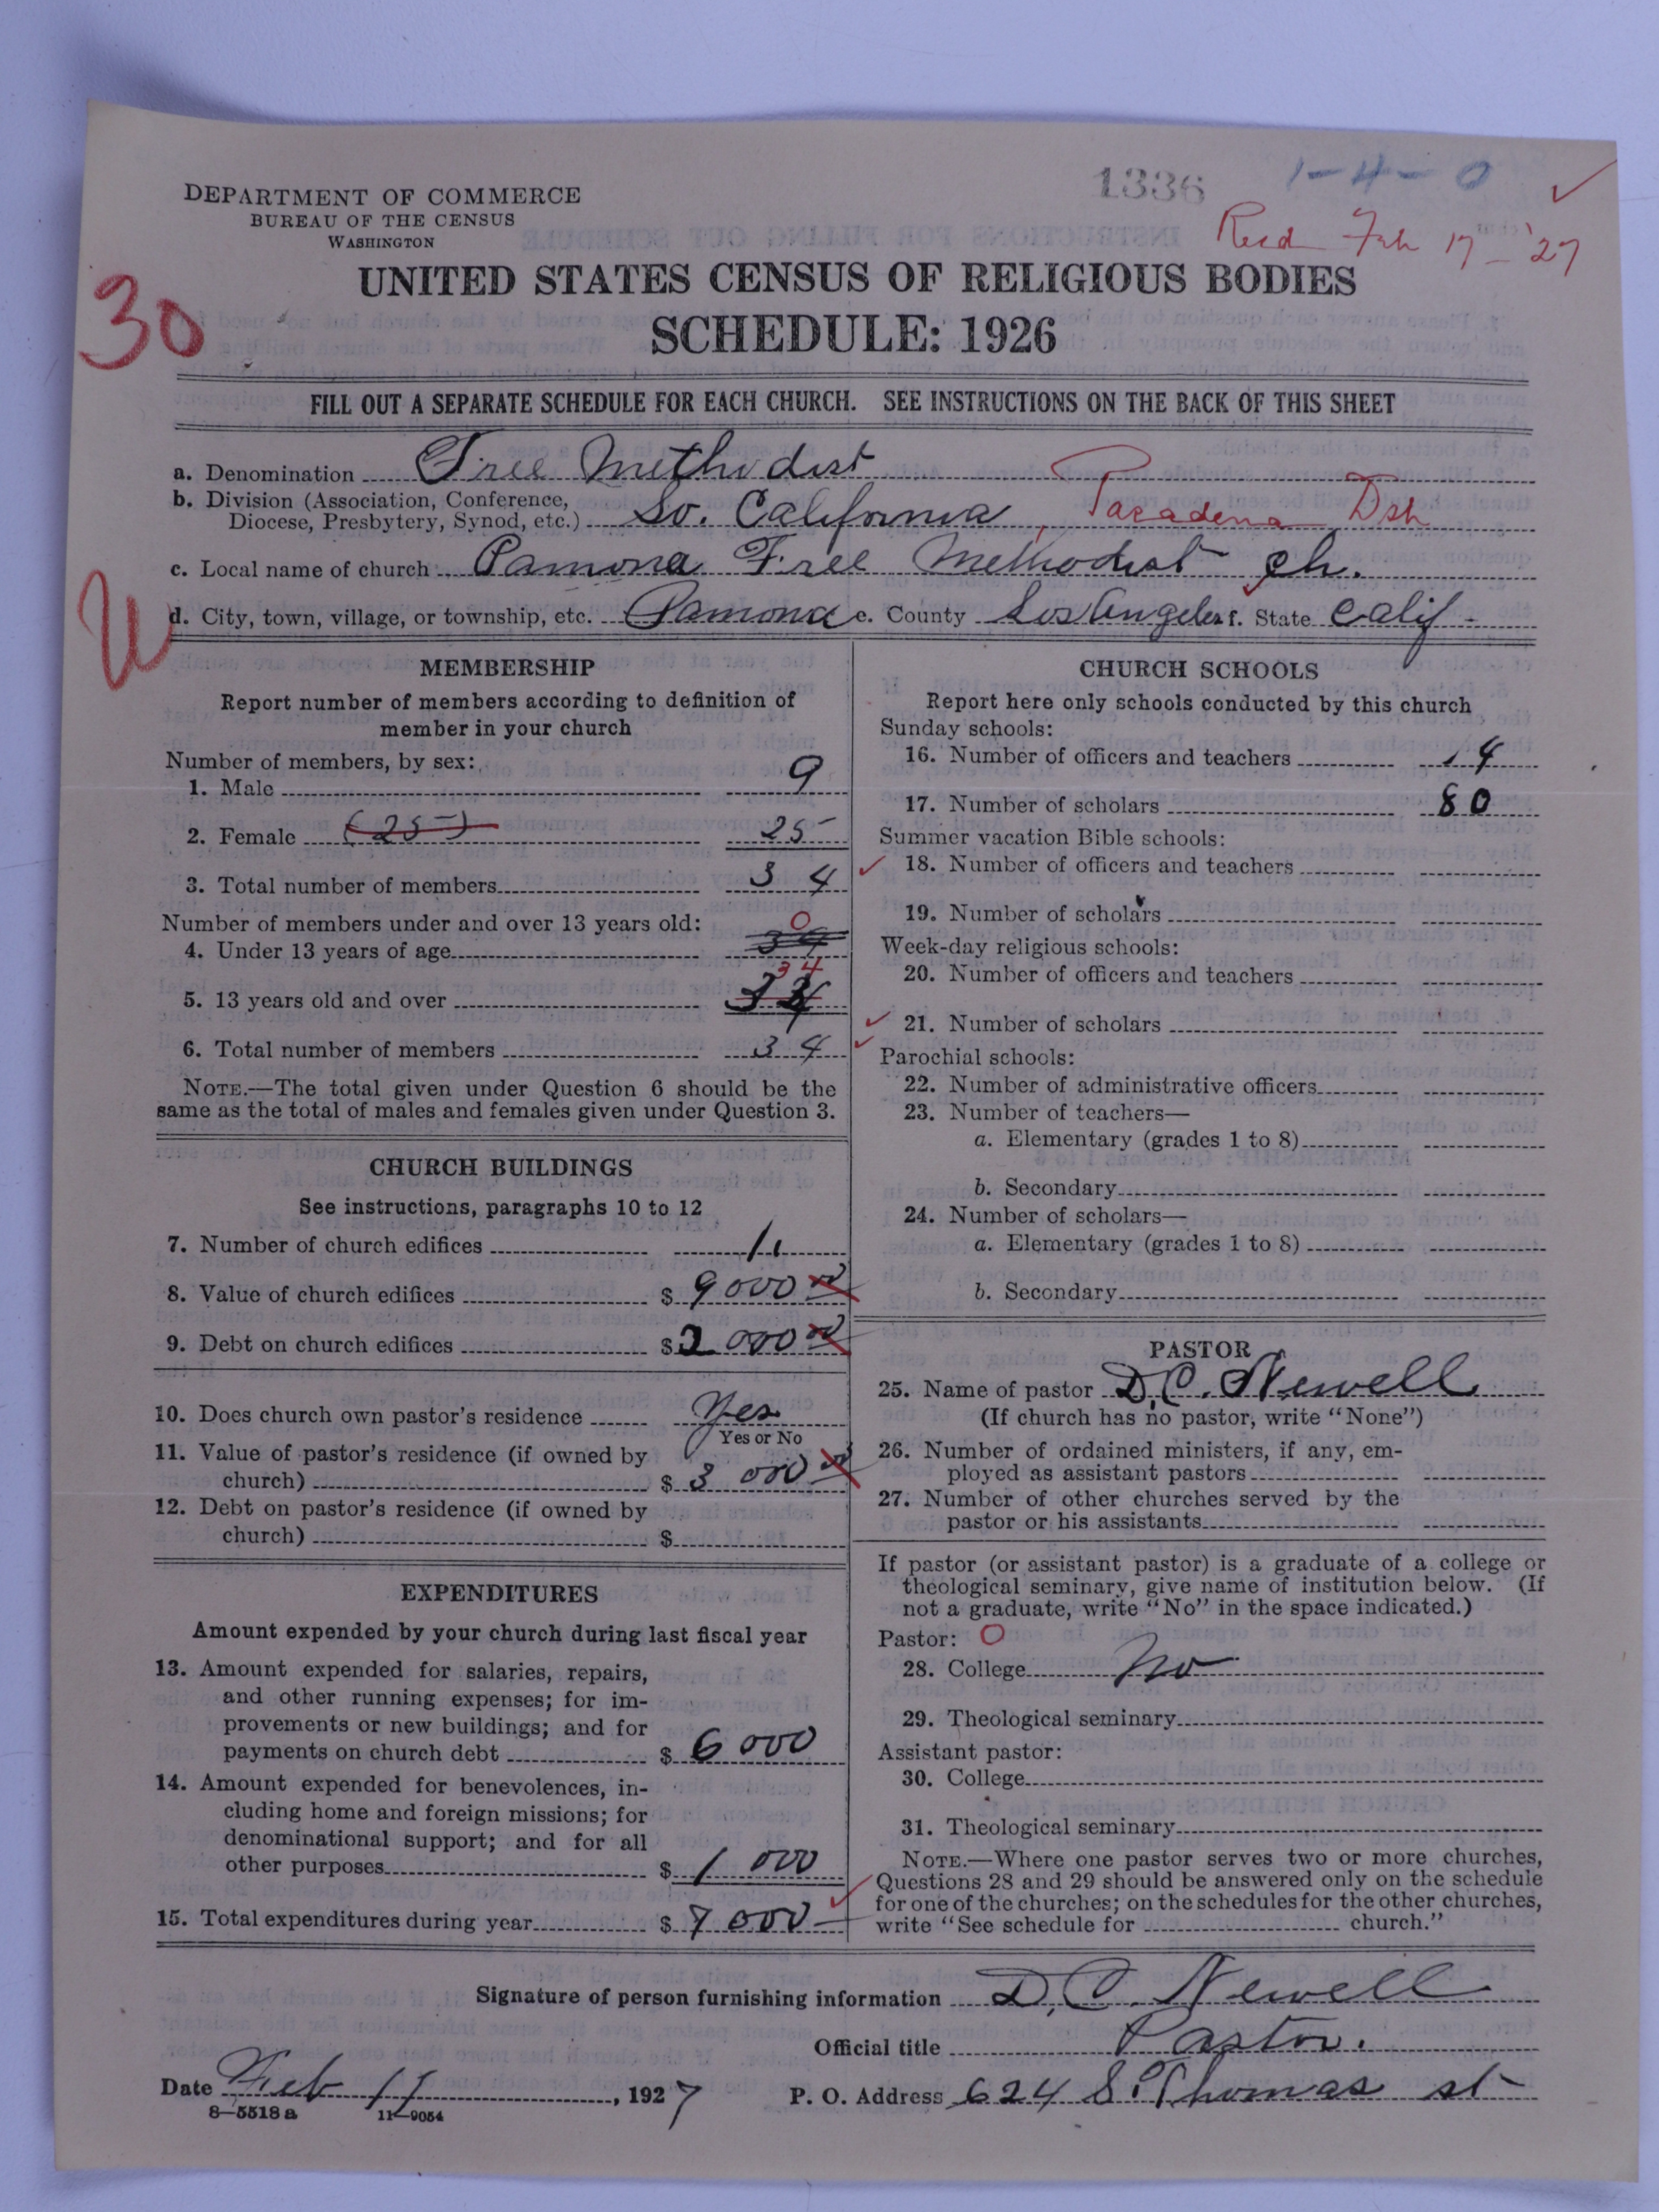 1336
1-4-0
DEPARTMENT OF COMMERCE
BUREAU OF THE CENSUS
WASHINGTON
Recd Feb 17-'27
30
UNITED STATES CENSUS OF RELIGIOUS BODIES
SCHEDULE: 1926
FILL OUT A SEPARATE SCHEDULE FOR EACH CHURCH. SEE INSTRUCTIONS ON THE BACK OF THIS SHEET
a. Denomination Free Methodist
b. Division (Association, Conference,
Diocese, Presbytery, Synod, etc.) So. California, Pasadena Dsh
c. Local name of church Pamona Free Methodist ch.
W
d. City, town, village, or township, etc. Pamona e. County Los Angeles f. State Calif
MEMBERSHIP
Report number of members according to definition of
member in your church
Number of members, by sex:
1. Male 9
2. Female (25) 25
3. Total number of members 34
Number of members under and over 13 years old:
0
4. Under 13 years of age 34
34
5. 13 years old and over 34
6. Total number of members 34
NOTE.—The total given under Question 6 should be the
same as the total of males and females given under Question 3.
CHURCH BUILDINGS
See instructions, paragraphs 10 to 12
7. Number of church edifices 1
8. Value of church edifices $ 9000 00
9. Debt on church edifices $ 2000 00
10. Does church own pastor's residence Yes
Yes or No
11. Value of pastor's residence (if owned by
church) $ 3000 00
12. Debt on pastor's residence (if owned by
church) $
EXPENDITURES
Amount expended by your church during last fiscal year
13. Amount expended for salaries, repairs,
and other running expenses; for im-
provements or new buildings; and for
payments on church debt $ 6000
14. Amount expended for benevolences, in-
cluding home and foreign missions; for
denominational support; and for all
other purposes $ 1000
15. Total expenditures during year $ 7000
CHURCH SCHOOLS
Report here only schools conducted by this church
Sunday schools:
16. Number of officers and teachers 14
17. Number of scholars 80
Summer vacation Bible schools:
18. Number of officers and teachers
19. Number of scholars
Week-day religious schools:
20. Number of officers and teachers
21. Number of scholars
Parochial schools:
22. Number of administrative officers
23. Number of teachers—
a. Elementary (grades 1 to 8)
b. Secondary
24. Number of scholars—
a. Elementary (grades 1 to 8)
b. Secondary
PASTOR
25. Name of pastor D. C. Newell
(If church has no pastor, write "None")
26. Number of ordained ministers, if any, em-
ployed as assistant pastors
27. Number of other churches served by the
pastor or his assistants
If pastor (or assistant pastor) is a graduate of a college or
theological seminary, give name of institution below. (If
not a graduate, write "No" in the space indicated.)
Pastor: O
28. College No
29. Theological seminary
Assistant pastor:
30. College
31. Theological seminary
NOTE.—Where one pastor serves two or more churches,
Questions 28 and 29 should be answered only on the schedule
for one of the churches; on the schedules for the other churches,
write "See schedule for church."
Signature of person furnishing information D. C. Newell
Official title Pastor.
Date Feb 11, 1927 P. O. Address 624 S. Thomas st
8—5518 a 11—9054